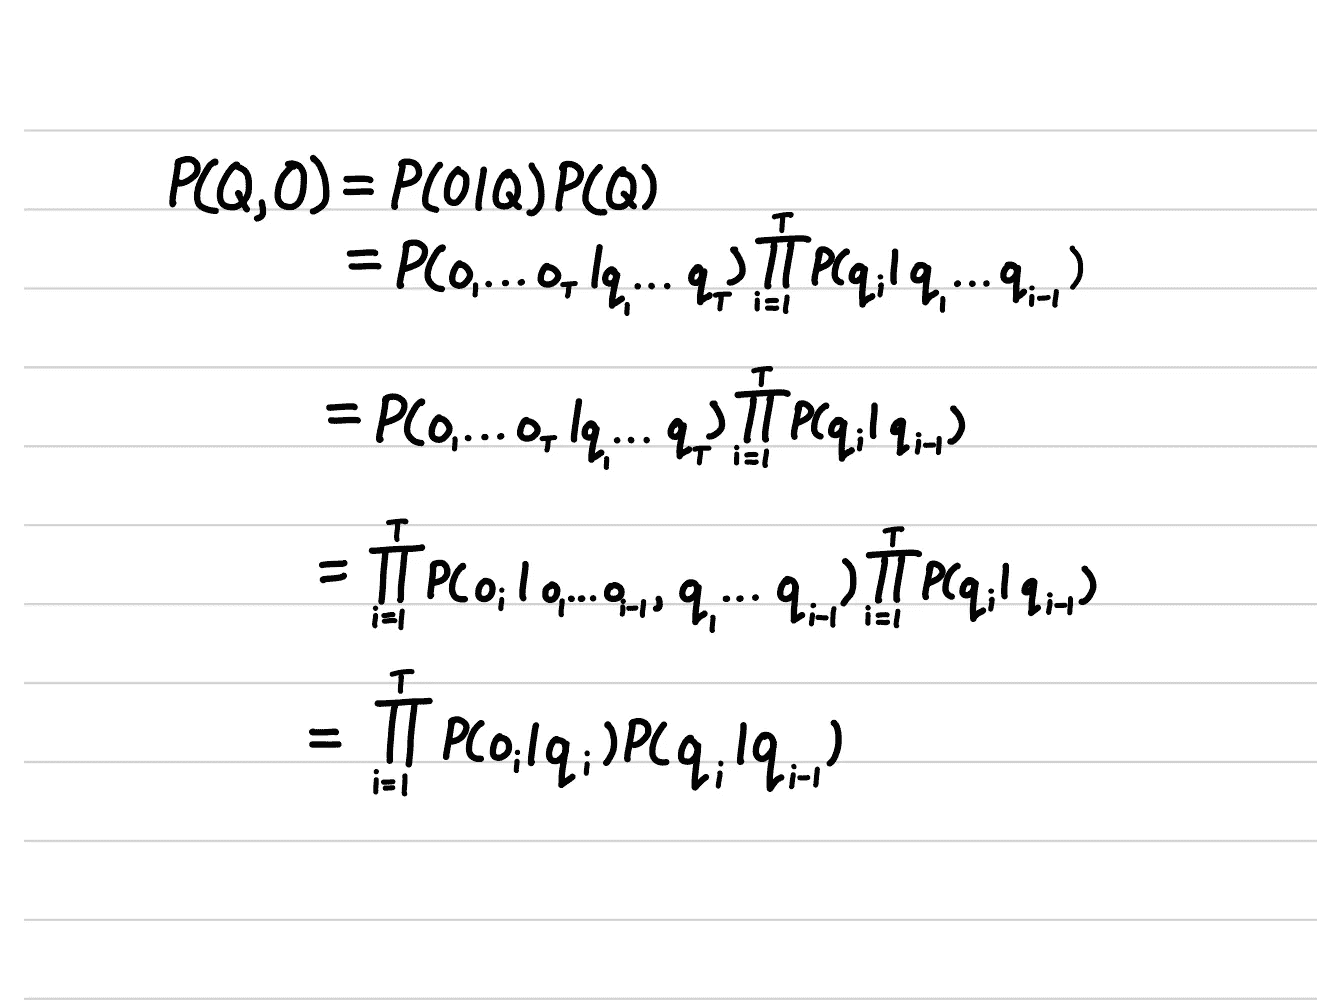 P(Q,O) = P(O|Q)P(Q)
= P(o₁...o_T|q₁...q_T)∏_{i=1}^{T}P(q_i|q₁...q_{i-1})
= P(o₁...o_T|q₁...q_T)∏_{i=1}^{T}P(q_i|q_{i-1})
= ∏_{i=1}^{T}P(o_i|o₁...o_{i-1}, q₁...q_{i-1})∏_{i=1}^{T}P(q_i|q_{i-1})
= ∏_{i=1}^{T}P(o_i|q_i)P(q_i|q_{i-1})